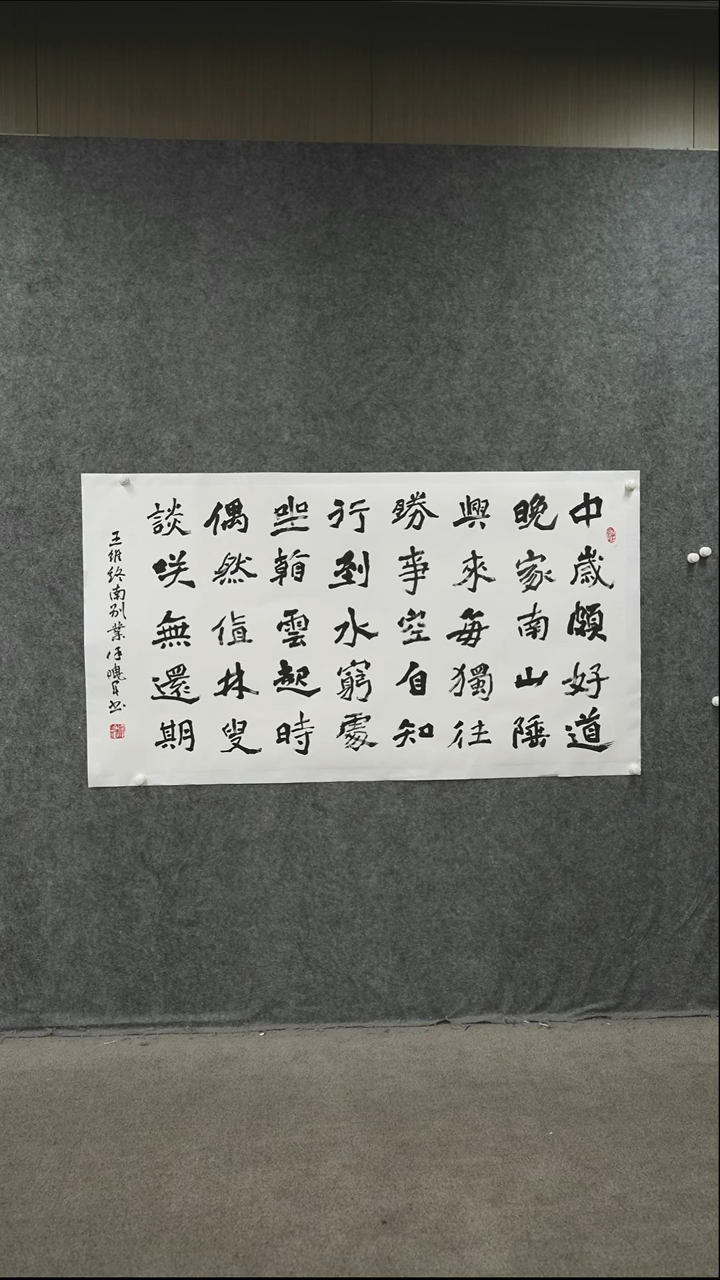 中歲頗好道
晚家南山陲
興來每獨往
勝事空自知
行到水窮處
坐看雲起時
偶然值林叟
談咲無還期
王維終南別業